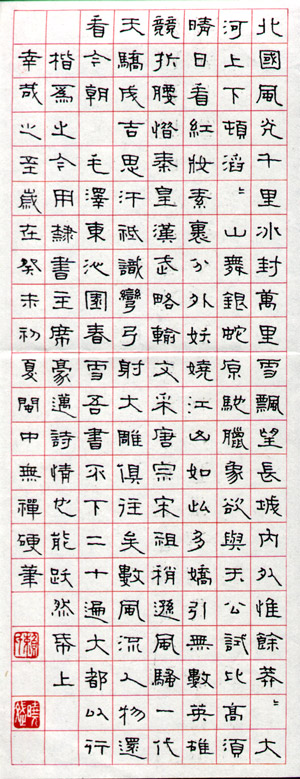 北國風光千里冰封萬里雪飄望長城內外惟餘莽〻大
河上下頓滔〻山舞銀蛇原馳臘象欲與天公試比高須
晴日看紅妝素裹分外妖嬈江山如此多嬌引無數英雄
競折腰惜秦皇漢武略輸文采唐宗宋祖稍遜風騷一代
天驕成吉思汗祗識彎弓射大雕俱往矣數風流人物還
看今朝 毛澤東沁園春雪吾書不下二十遍大都以行
楷爲之今用隸書主席豪邁詩情也能跃然帋上
幸哉之至歲在癸未初夏閩中無禪硬筆